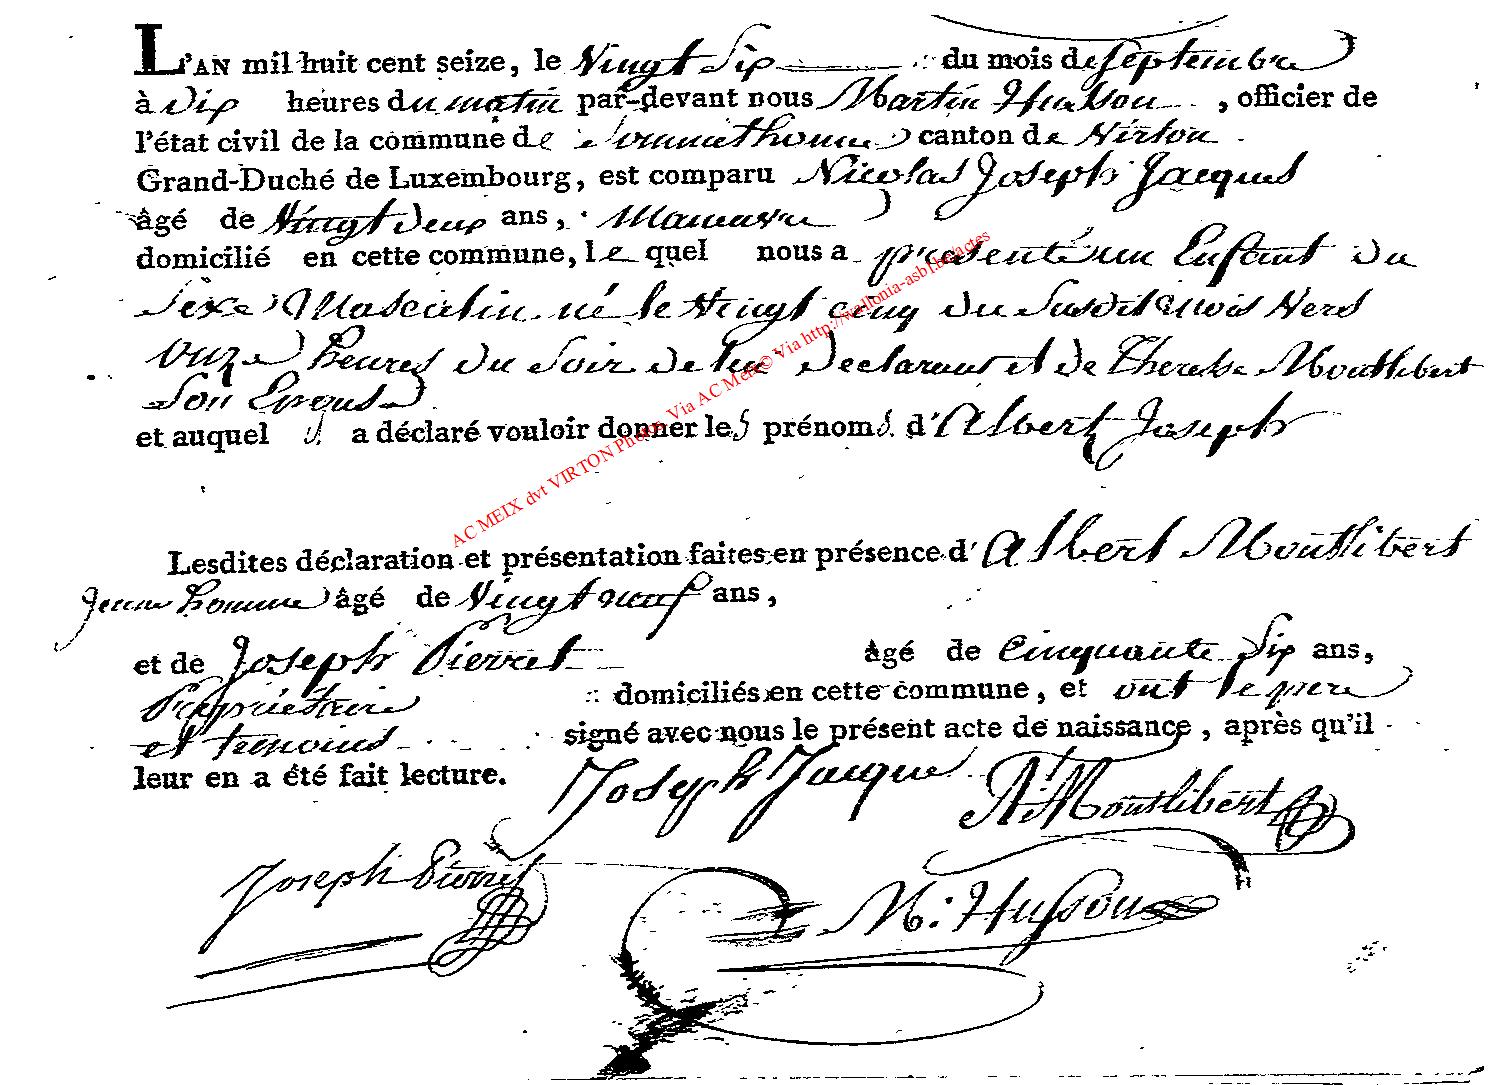 L'AN mil huit cent seize, le Vingt Six du mois de Septembre
à Dix heures du matin par-devant nous Martin Husson, officier de
l'état civil de la commune de Sommethonne canton de Virton
Grand-Duché de Luxembourg, est comparu Nicolas Joseph Jacques
âgé de Vingt Deux ans, Manœuvre
domicilié en cette commune, le quel nous a présenté un Enfant Du
Sexe Masculin né le Vingt cinq Du Susdit mois Vers
onze heures Du Soir De lui Declarant et De Therese Montlibert
Son Epouse
et auquel il a déclaré vouloir donner les prénoms d'Albert Joseph
Lesdites déclaration et présentation faites en présence d'Albert Montlibert
Jeune homme âgé de Vingt neuf ans,
et de Joseph Pierret âgé de Cinquante Six ans,
Propriétaire domiciliés en cette commune, et ont le pere
et temoins signé avec nous le présent acte de naissance, après qu'il
leur en a été fait lecture.
Joseph Jacque A. Montlibert
Joseph Pierret M: Husson
AC MEIX dvt VIRTON Photos Via AC Meix© Via http://wallonia-asbl.be/actes